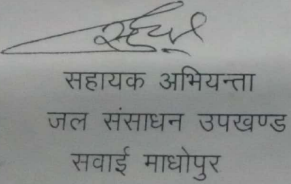 सहायक अभियन्ता
जल संसाधन उपखण्ड
सवाई माधोपुर